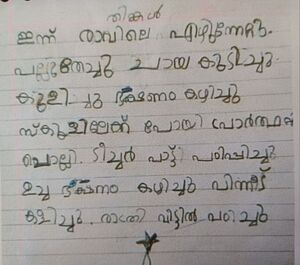 തിങ്കൾ
ഇന്ന് രാവിലെ എഴുന്നേറ്റു.
പല്ലുതേച്ചു ചായ കുടിച്ചു.
കുളിച്ചു ഭക്ഷണം കഴിച്ചു
സ്കൂളിലേക്ക് പോയി പ്രാർത്ഥന
ചൊല്ലി. ടീച്ചർ പാട്ട് പഠിപ്പിച്ചു
ഉച്ച ഭക്ഷണം കഴിച്ചു പിന്നീട്
കളിച്ചു. രാത്രി വീട്ടിൽ പഠിച്ചു